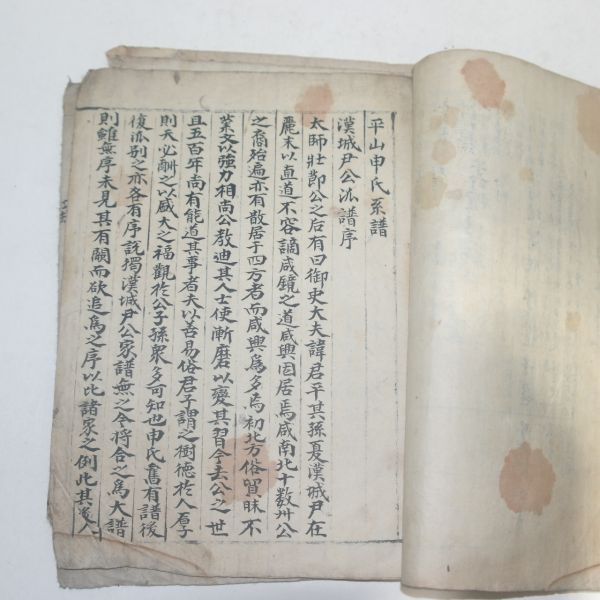 平山申氏系譜
漢城尹公派譜序
太師壯節公之后有曰御史大夫諱君平其孫夏漢城尹在
麗末以直道不容謫咸鏡之道咸興因居焉咸南北十數州公
之裔殆遍亦有散居于四方者而咸興爲多焉初北方俗貿昧不
業文以強力相尚公教迪其人士使漸磨以變其習今去公之世
且五百年尚有能道其事者夫以善易俗君子謂之樹德於人看子
則天必酬之以咸大之福觀於公子孫衆多可知也申氏舊有譜後
復派別之亦各有序說獨漢城尹公家譜無之今將合之爲大譜
則雖無序未見其有闕而欲追爲之序以比諸家之例此其後人